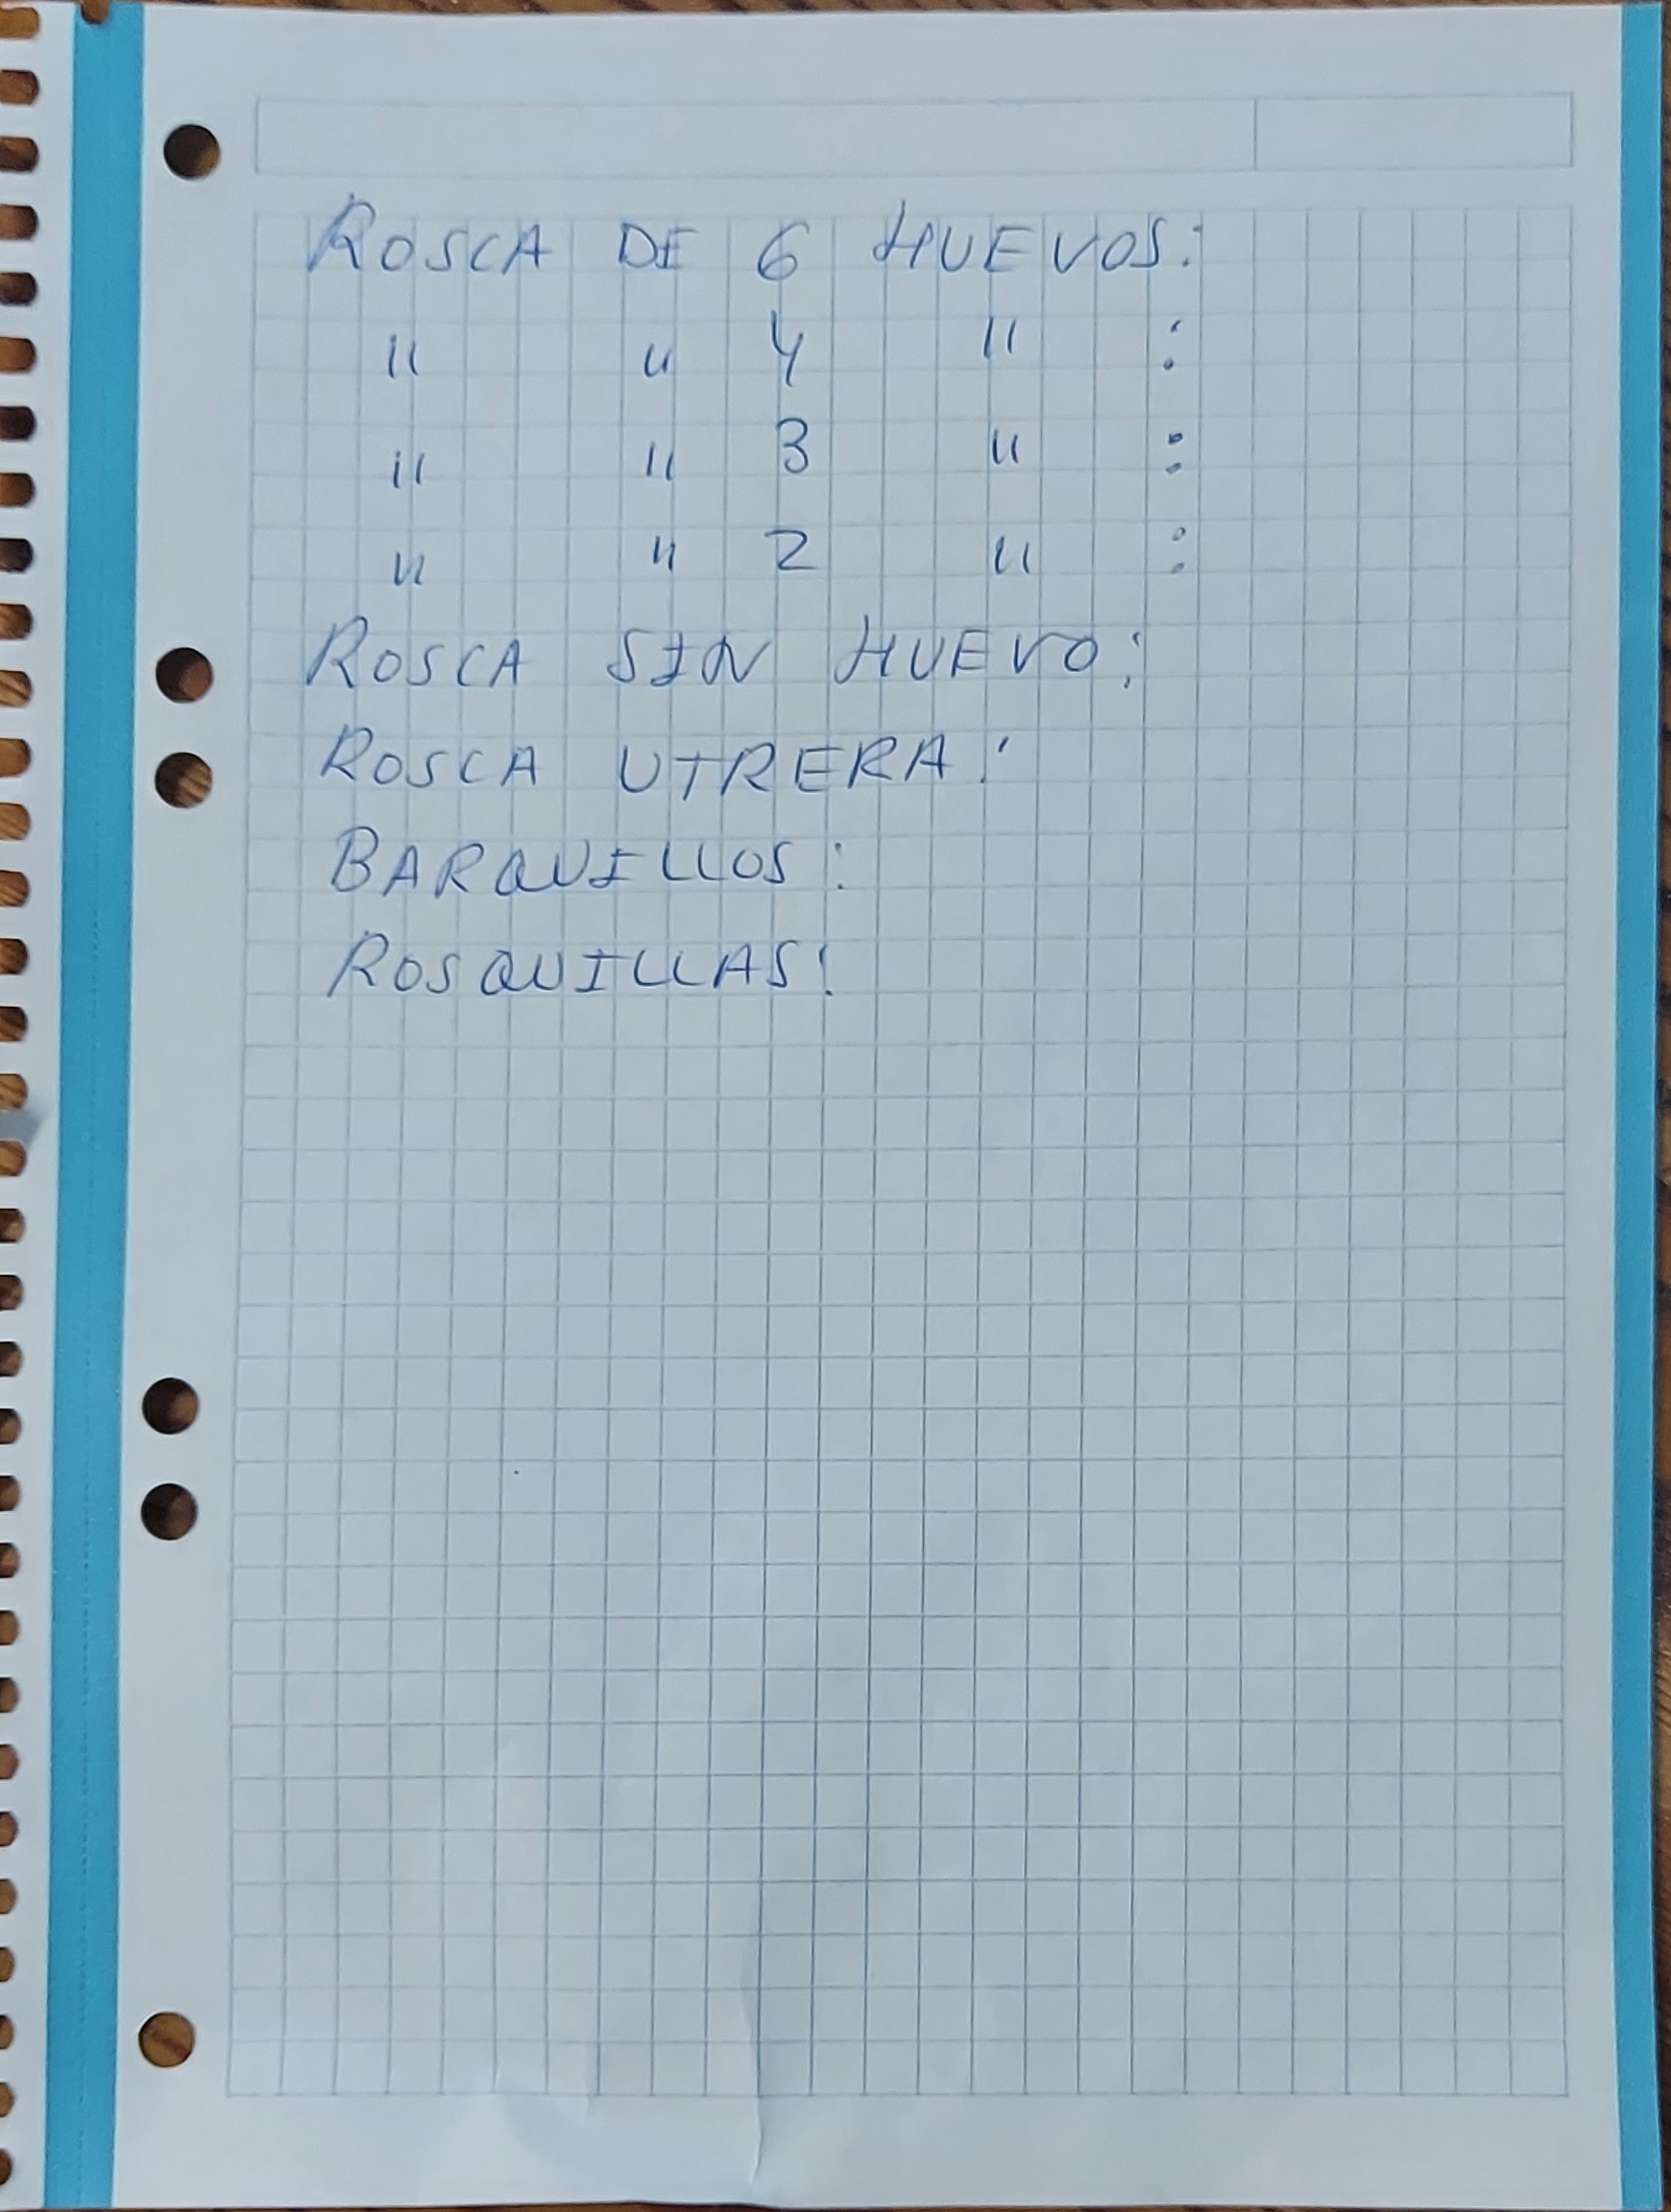 ROSCA DE 6 HUEVOS:
" " 4 " :
" " 3 " :
" " 2 " :
ROSCA SIN HUEVO:
ROSCA UTRERA:
BARQUILLOS:
ROSQUILLAS: